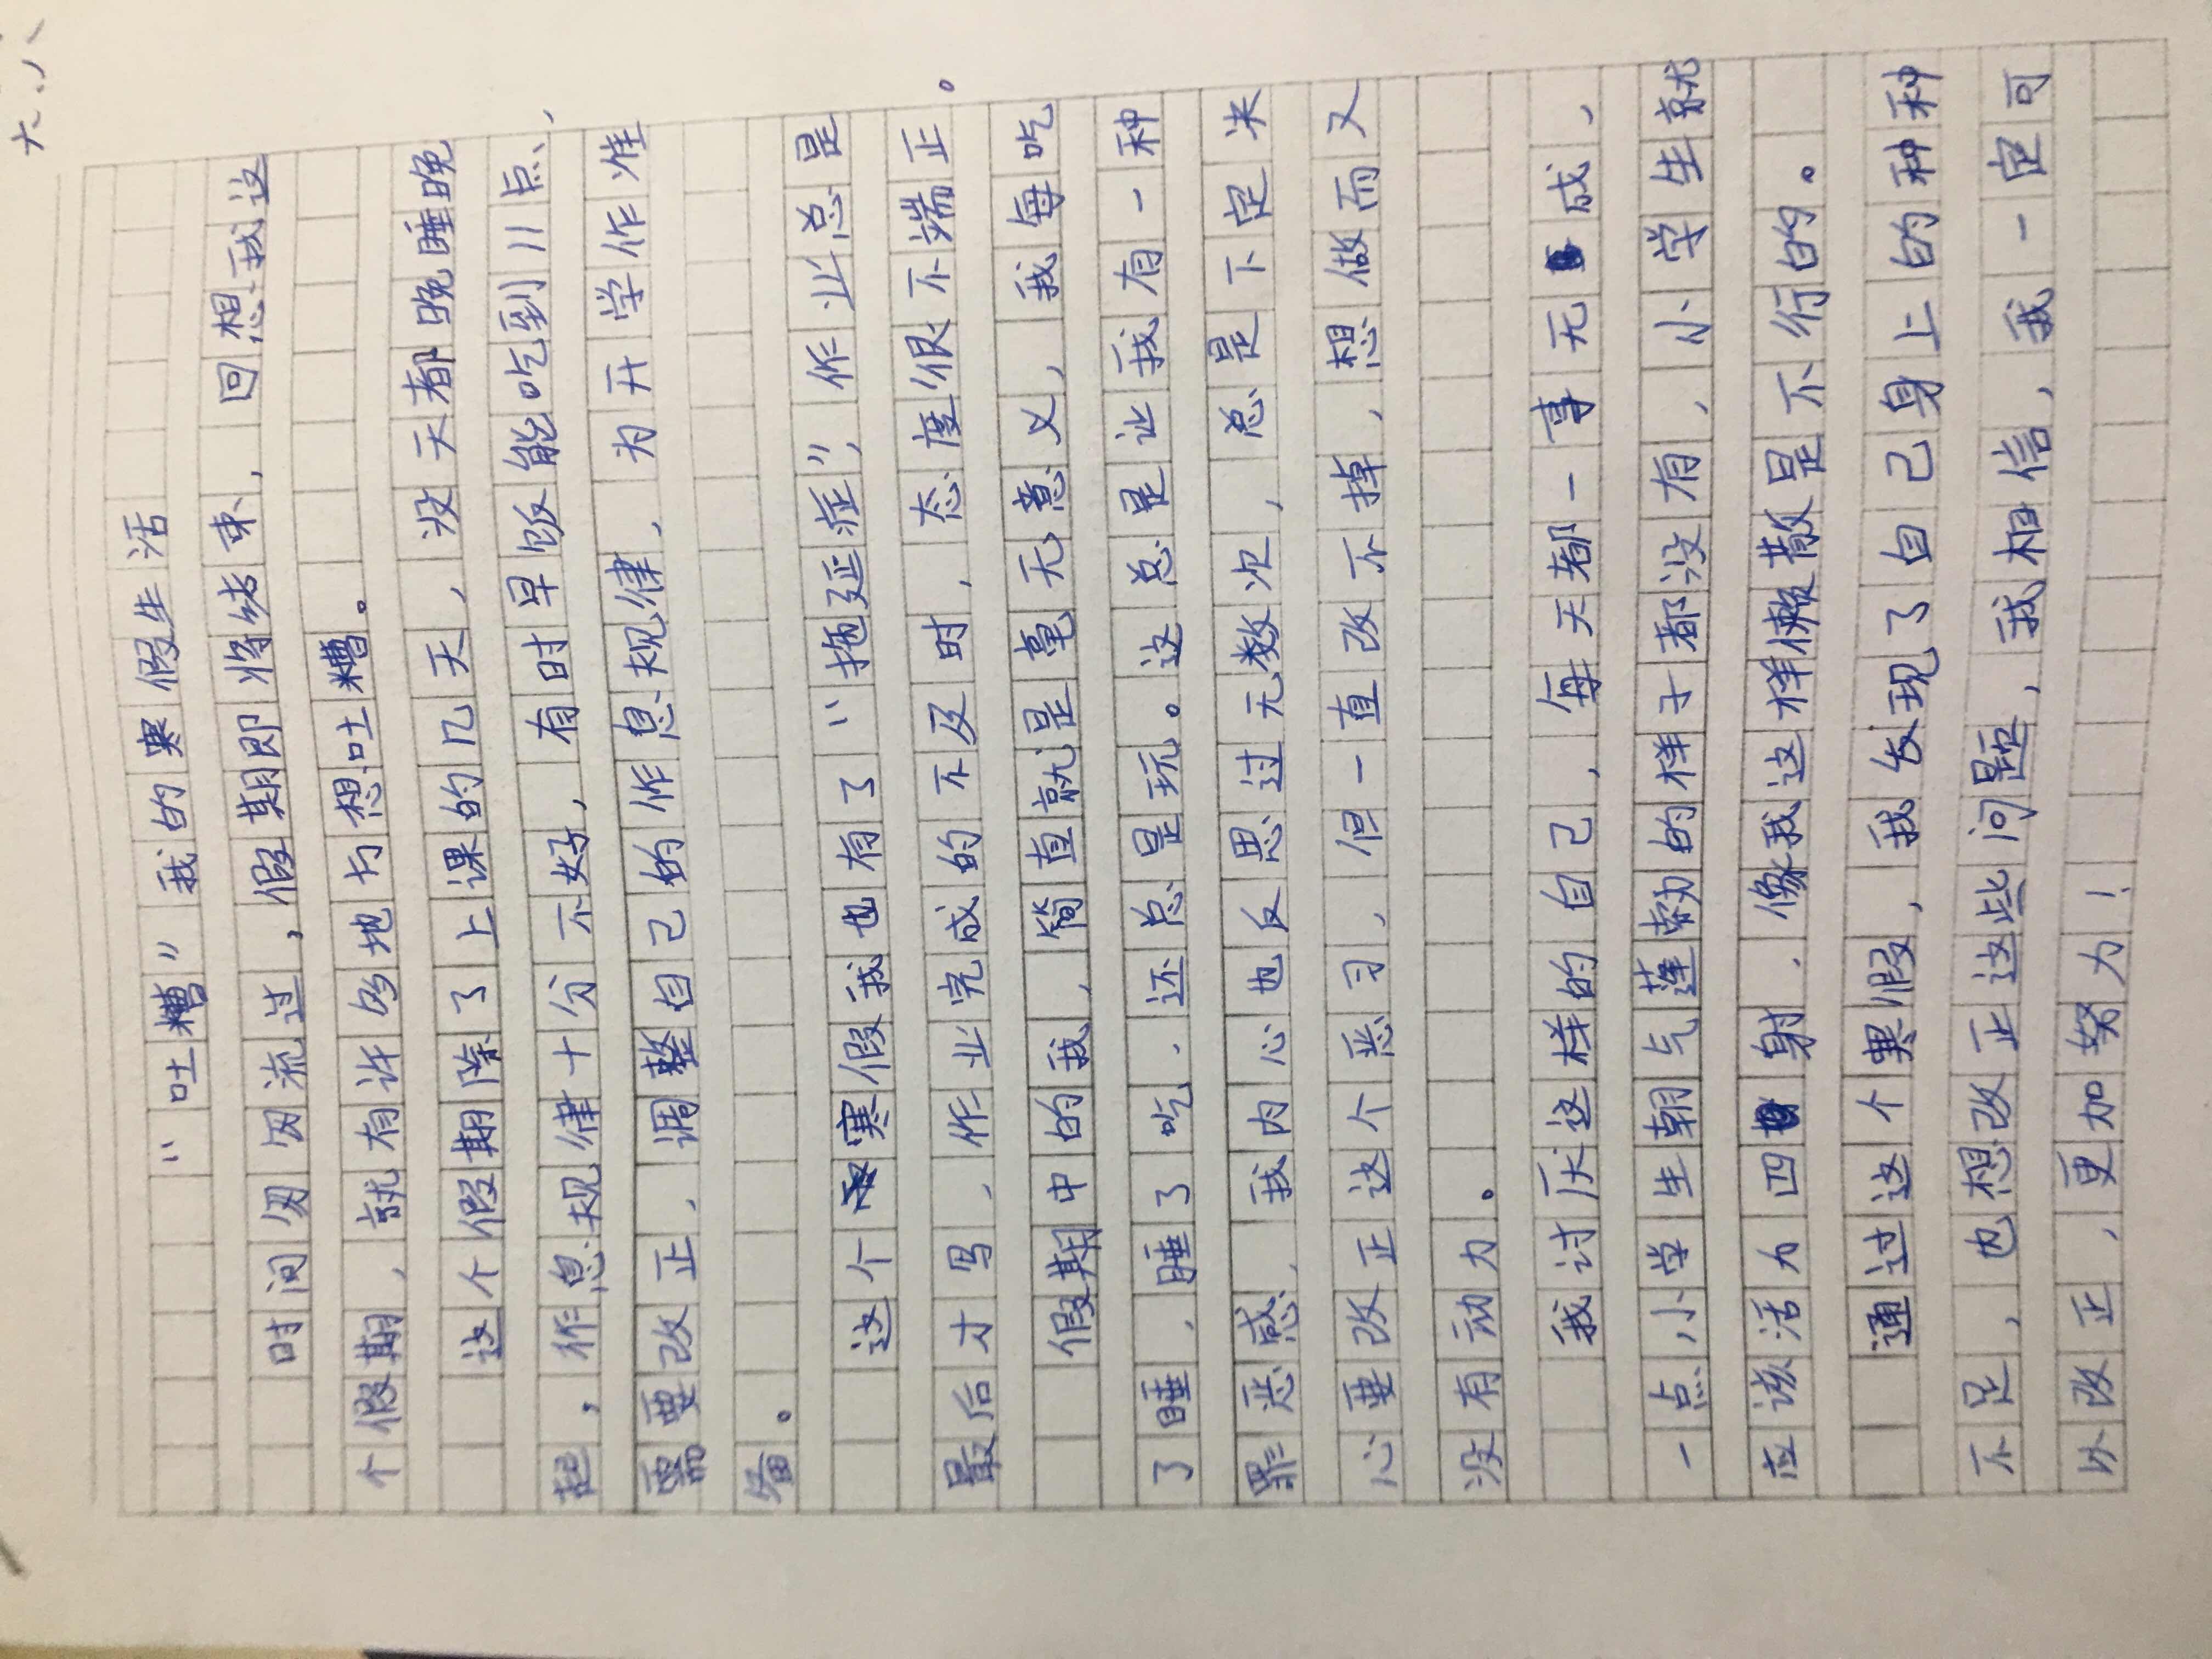 “吐糟”我的寒假生活
时间匆匆流过，假期即将结束，回想我这
个假期，就有许多地方想吐糟。
这个假期除了上课的几天，没天都晚睡晚
起，作息规律十分不好，有时早饭能吃到11点、
需要改正，调整自己的作息规律，为开学作准
备。
这个寒假我也有了“拖延症”，作业总是
最后才写，作业完成的不及时，态度很不端正。
假期中的我，简直就是毫无意义，我每吃
了睡，睡了吃，还总是玩。这总是让我有一种
罪恶感，我内心也反思过无数次，总是下定决
心要改正这个恶习，但一直改不掉，想做而又
没有动力。
我讨厌这样的自己，每天都一事无成，
一点小学生朝气蓬勃的样子都没有，小学生就
应该活力四射，像我这样懒散是不行的。
通过这个寒假，我发现了自己身上的种种
不足，也想改正这些问题，我相信，我一定可
以改正，更加努力！